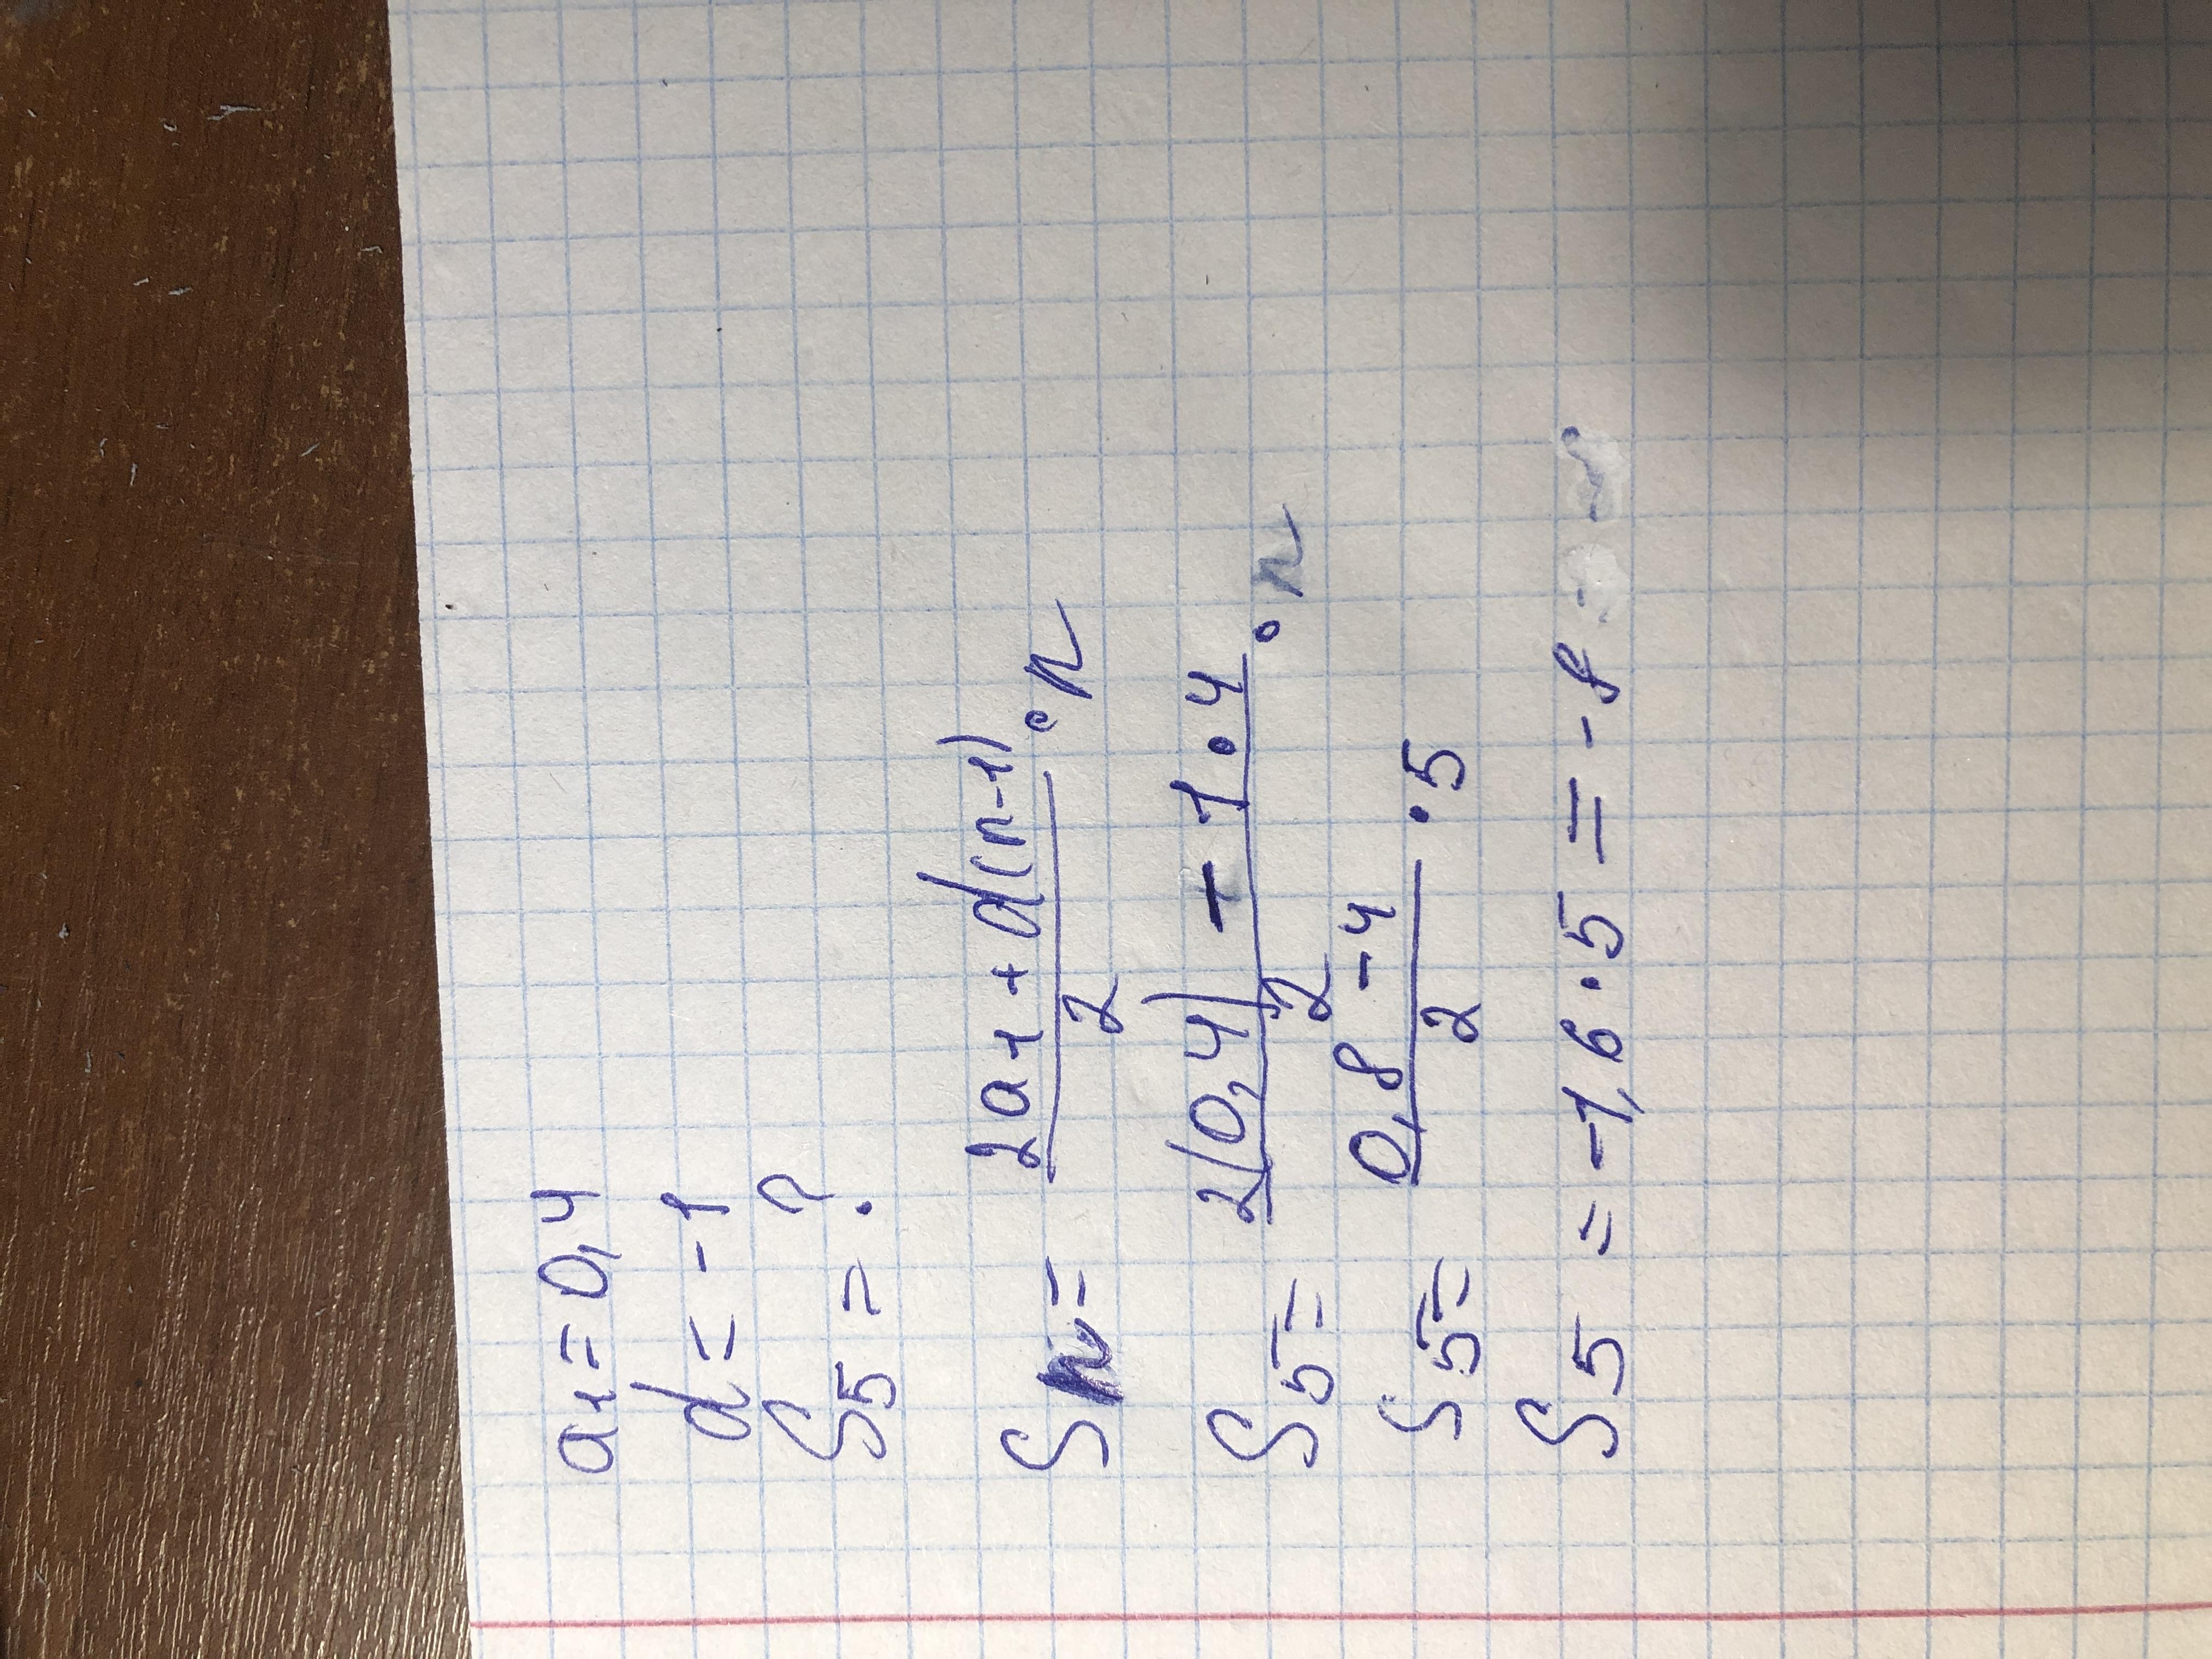 a₁ = 0,4
d = -1
S₅ = ?
Sn = (2a₁ + d(n-1))/2 · n
S₅ = (2(0,4) - 1·4)/2 · n
S₅ = (0,8 - 4)/2 · 5
S₅ = -1,6 · 5 = -8